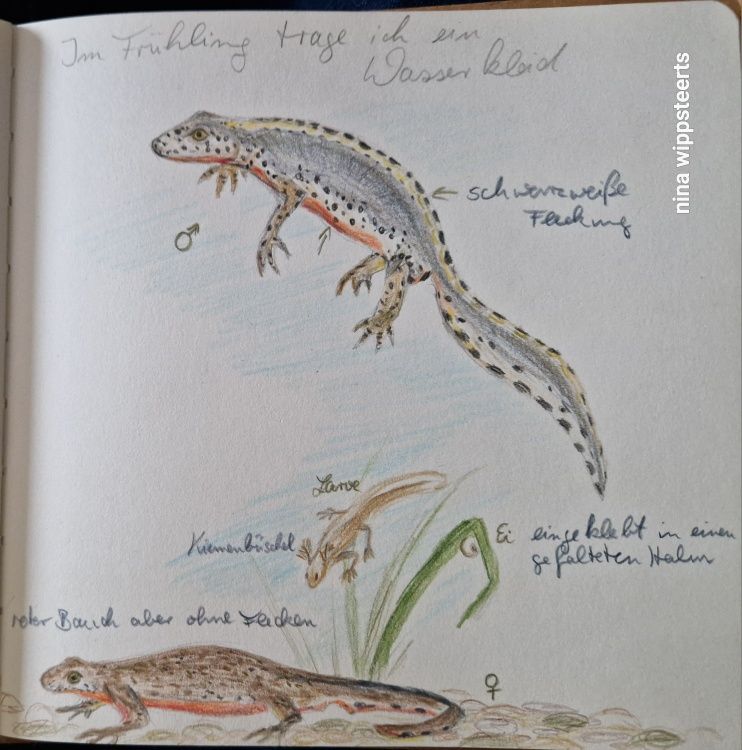 Im Frühling trage ich ein
Wasserkleid
nina wippsteerts
schwarzweiße
Fleckung
♂
Larve
Kiemenbüschel
Ei eingeklebt in einen
gefalteten Halm
roter Bauch aber ohne Flecken
♀